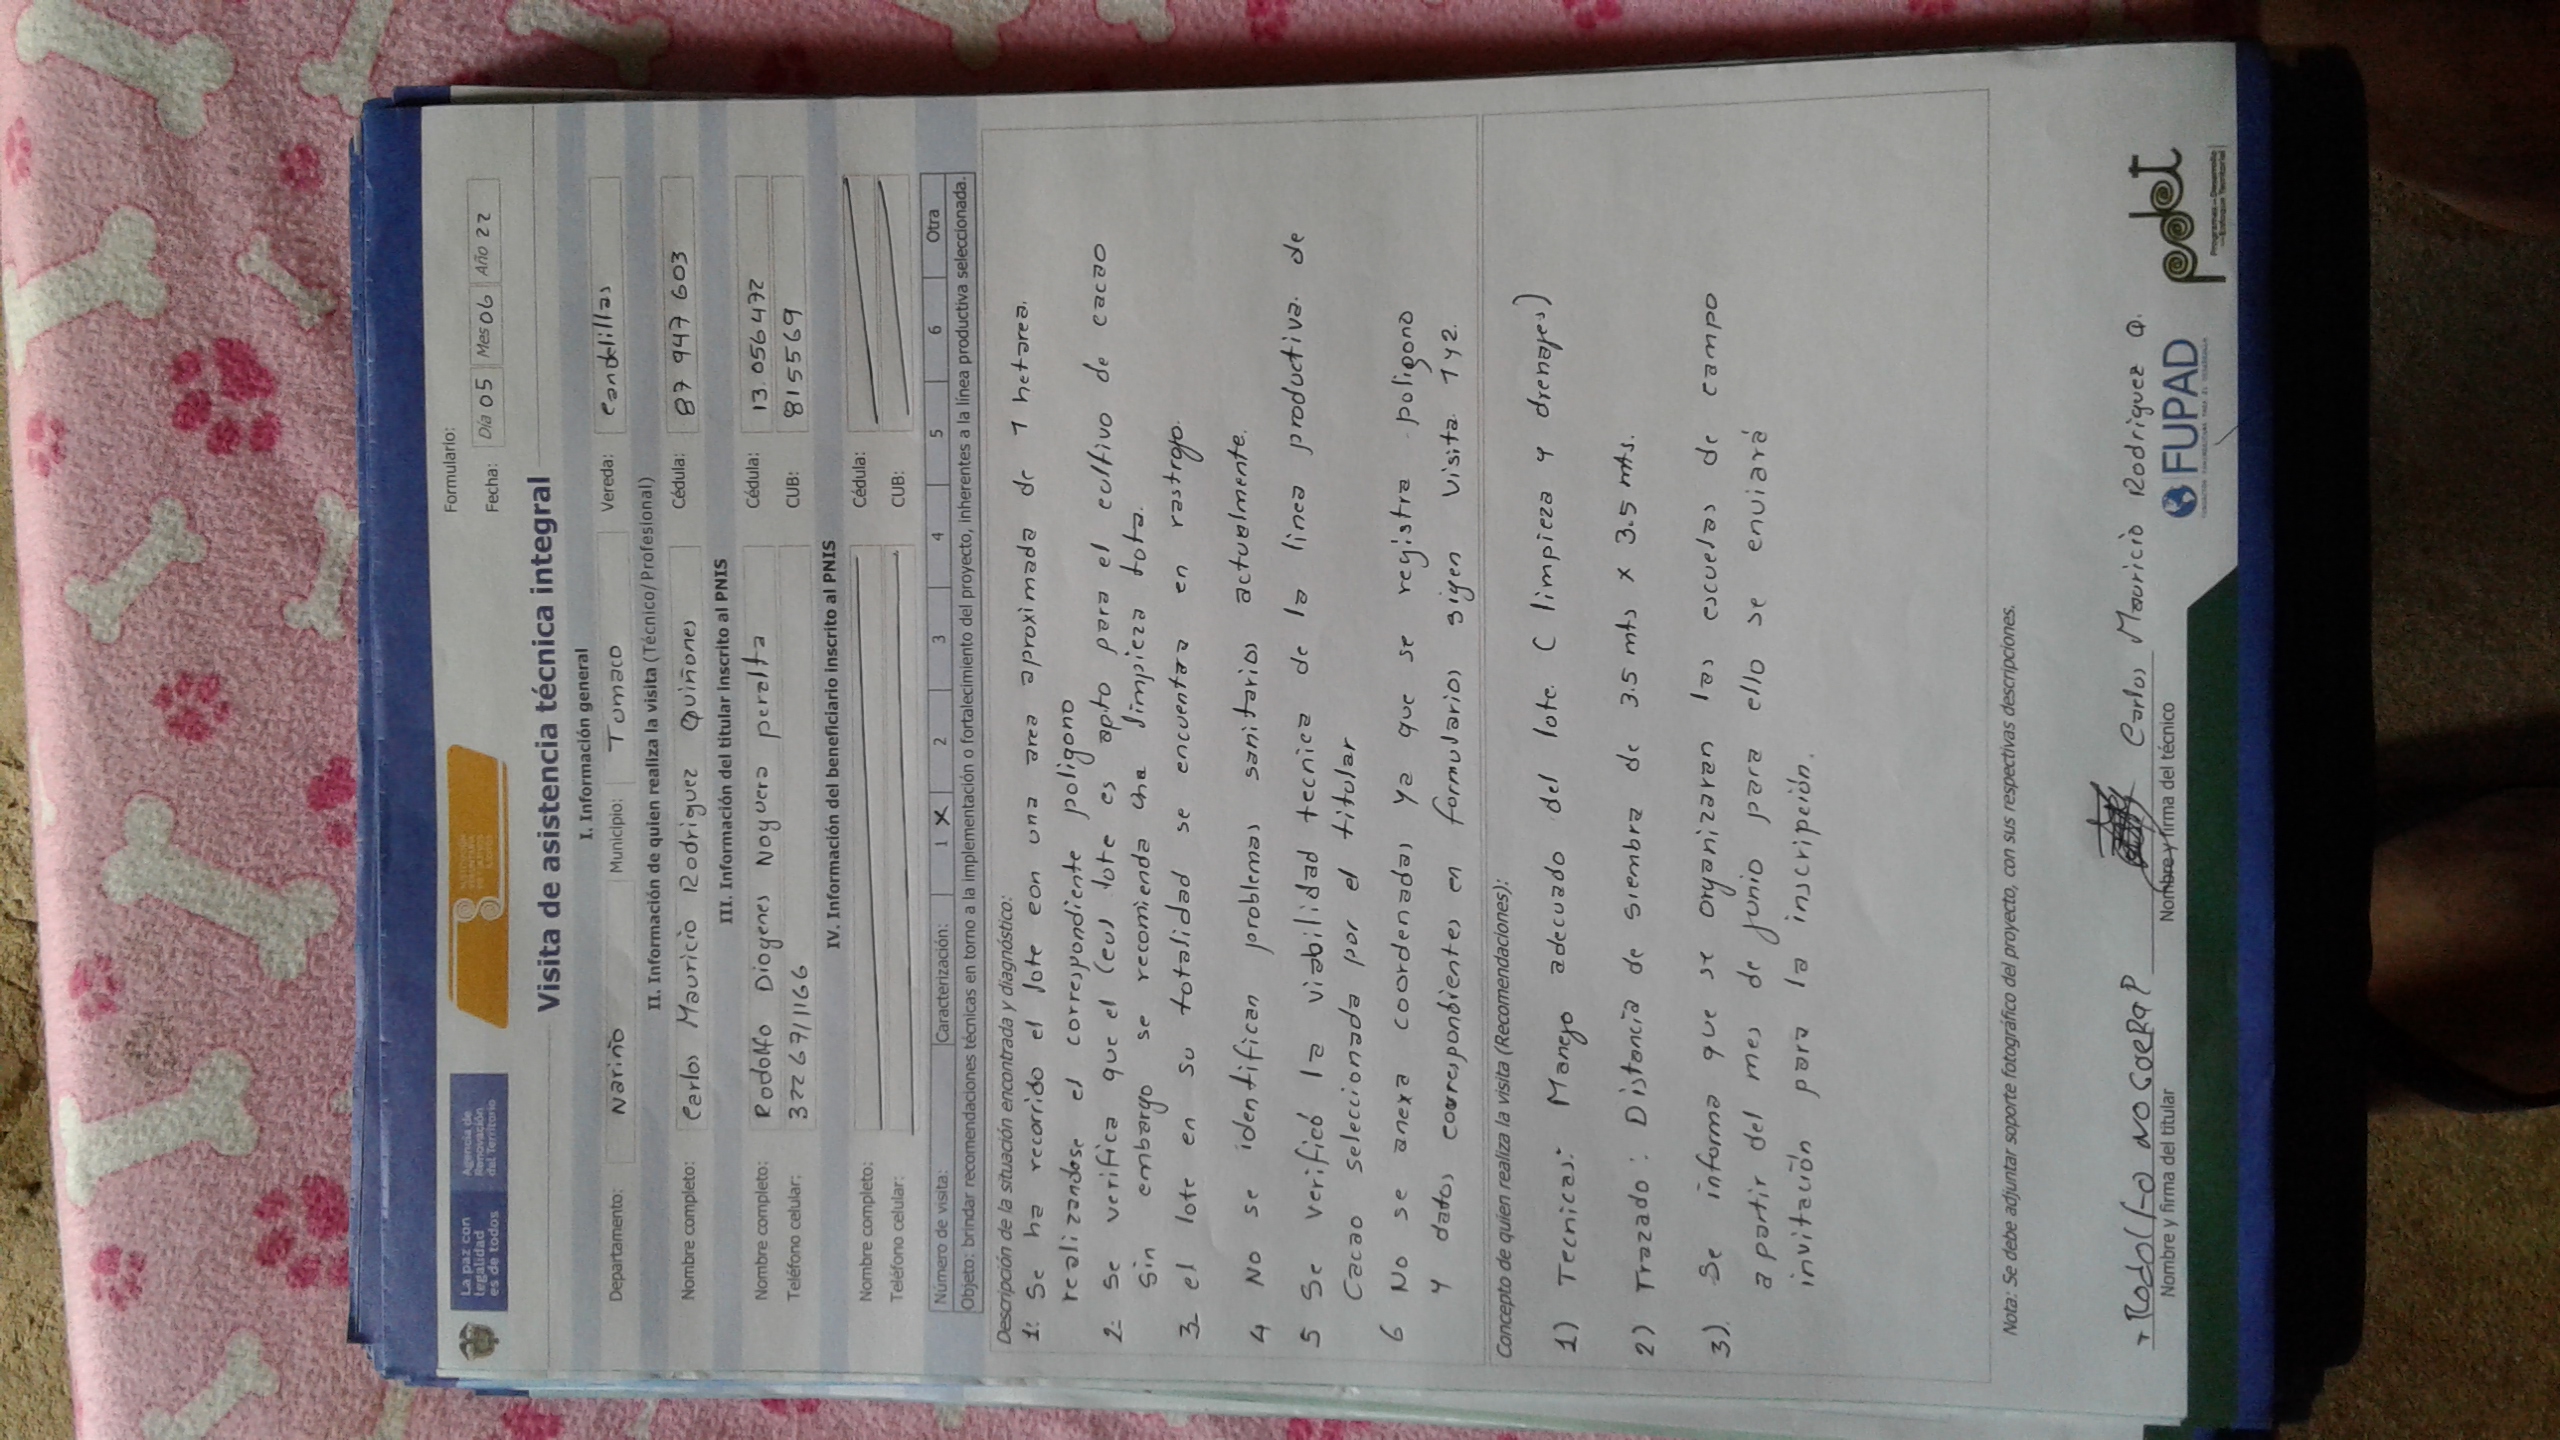 La paz con
legalidad
es de todos
Agencia de
Renovación
del Territorio
Formulario:
Fecha: Día 05 Mes 06 Año 22
Visita de asistencia técnica integral
I. Información general
Departamento: Nariño Municipio: Tumaco Vereda: candelillas
II. Información de quien realiza la visita (Técnico/Profesional)
Nombre completo: Carlos Mauricio Rodriguez Quiñones Cédula: 87 947 603
III. Información del titular inscrito al PNIS
Nombre completo: Rodolfo Diogenes Noguera peralta Cédula: 13.056492
Teléfono celular: 322 6711166 CUB: 815569
IV. Información del beneficiario inscrito al PNIS
Nombre completo: Cédula:
Teléfono celular: CUB:
Número de visita: Caracterización: 1 X 2 3 4 5 6 Otra
Objeto: brindar recomendaciones técnicas en torno a la implementación o fortalecimiento del proyecto, inherentes a la línea productiva seleccionada.
Descripción de la situación encontrada y diagnóstico:
1: Se ha recorrido el lote con una area aproximada de 1 hetarea.
realizandose el correspondiente poligono
2: Se verifica que el (eul lote es apto para el cultivo de cacao
Sin embargo se recomienda una limpieza tota.
3 el lote en su totalidad se encuentra en rastrojo.
4 No se identifican problemas sanitarios actualmente.
5 Se verificó la viabilidad tecnica de la linea productiva. de
Cacao seleccionada por el titular
6 No se anexa coordenadas ya que se registra poligono
y datos correspondientes en formularios sigen visita 1 y 2.
Concepto de quien realiza la visita (Recomendaciones):
1) Tecnicas: Manejo adecuado del lote. ( limpieza y drenajes)
2) Trazado: Distancia de siembra de 3.5 mts x 3.5 mts.
3). Se informa que se organizaran las escuelas de campo
a partir del mes de junio para ello se enviará
invitación para la inscripción.
Nota: Se debe adjuntar soporte fotográfico del proyecto, con sus respectivas descripciones.
Rodolfo NOGUERA P Carlos Mauricio Rodriguez Q.
Nombre y firma del titular Nombre y firma del técnico
FUPAD
pdet
Programas de Desarrollo
con Enfoque Territorial